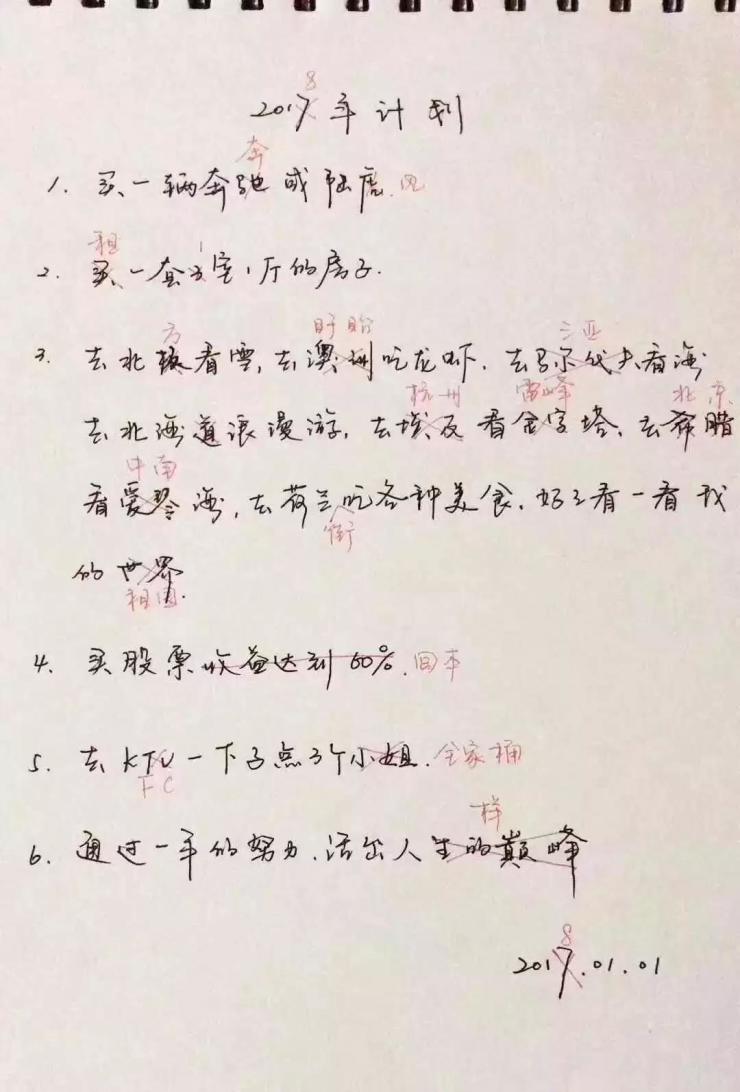 8
2017年计划
奔
1. 买一辆奔驰或陆虎.风
租 1
2. 买一套3室1厅的房子.
方 盱眙 三亚
3. 去北极看雪,去澳洲吃龙虾.去马尔代夫看海
杭州 雷峰 北京
去北海道浪漫游,去埃及看金字塔、去希腊
中南
看爱琴海,去荷兰吃各种美食.好好看一看我
街
的世界.
祖国
4. 买股票收益达到60%.回本
5. 去KTV一下子点3个小姐.全家桶
FC
样
6. 通过一年的努力.活出人生的巅峰
8
2017.01.01